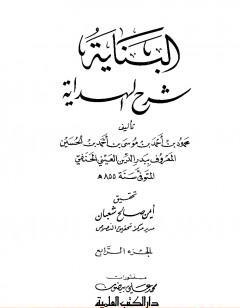 البناية
شرح الهداية
تأليف
محمود بن أحمد بن موسى بن أحمد بن الحسين
المعروف ببدر الدين العيني الحنفي
المتوفى سنة ٨٥٥ هـ
تحقيق
أيمن صالح شعبان
مدير مركز تحقيق النصوص
الجزء الرابع
منشورات
محمد علي بيضون
دار الكتب العلمية